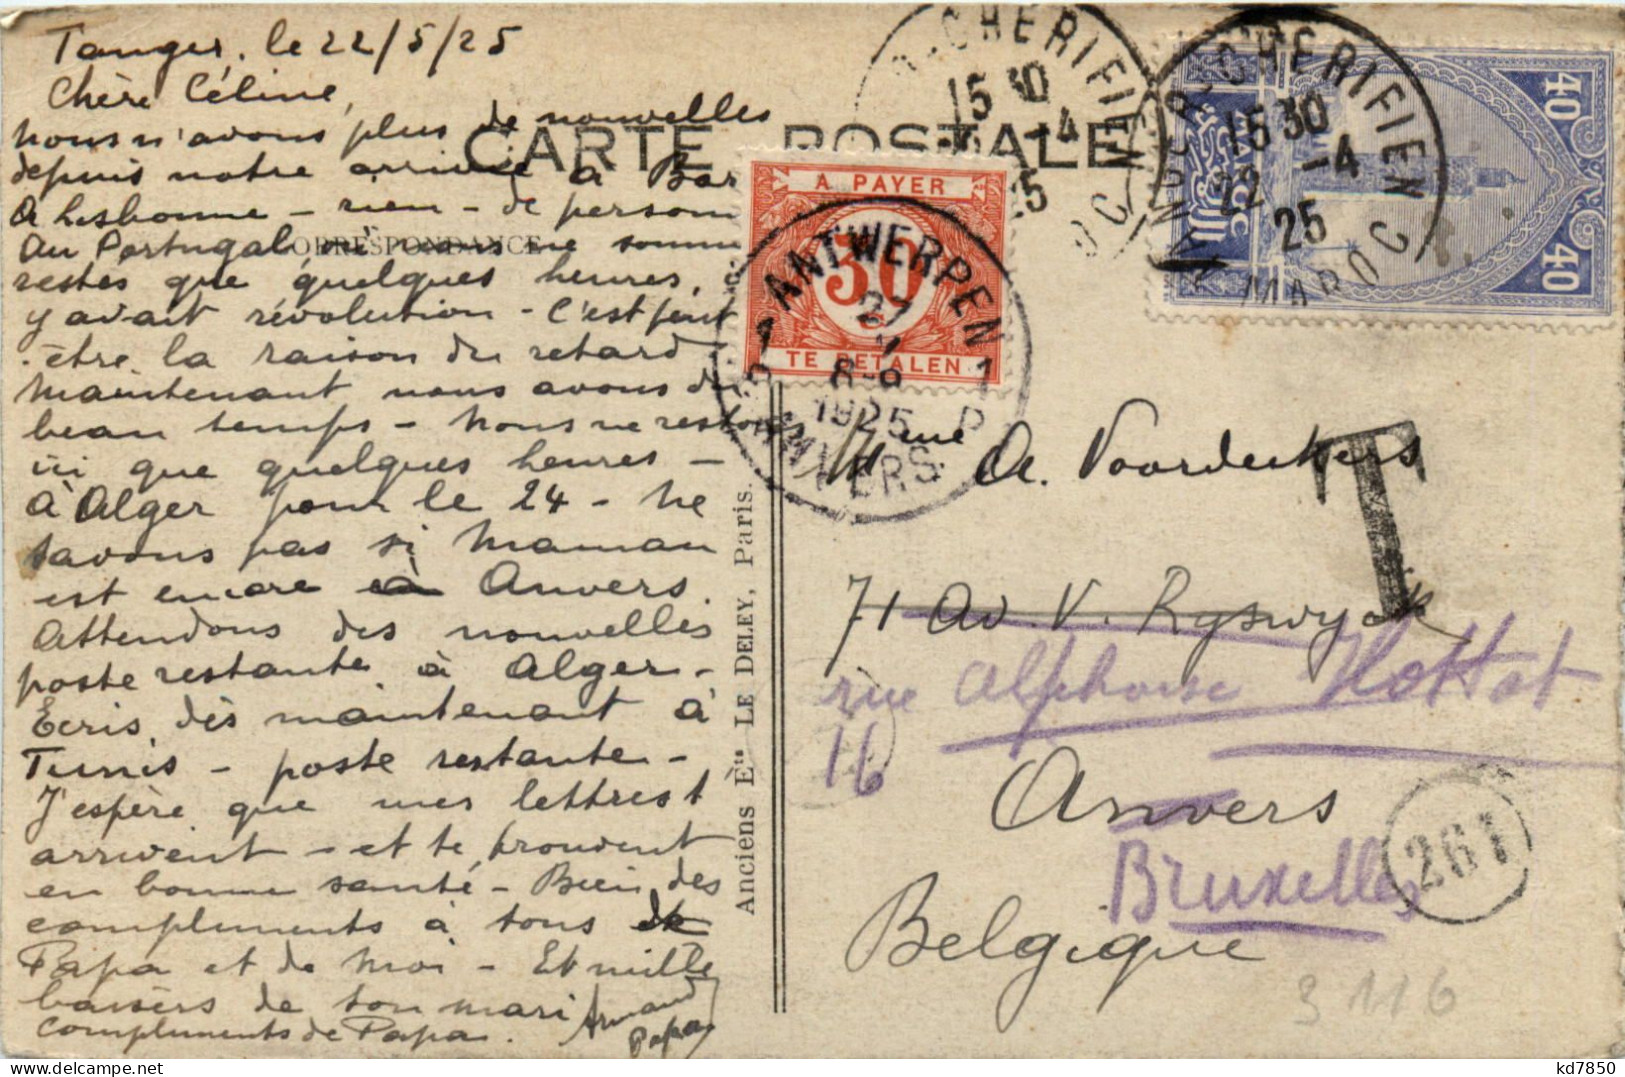 Tanger, le 22/5/25
Chère Céline,
nous n'avons plus de nouvelles
depuis notre arrivée à Bor
A Lisbonne - rien - de person
Au Portugal où nous ne somm
restés que quelques heures,
y avait révolution - C'est peut
être la raison du retard
Maintenant nous avons du
beau temps - Nous ne restons
ici que quelques heures -
à Alger pour le 24 - Ne
savons pas si Maman
est encore à Anvers.
Attendons des nouvelles
poste restante à Alger -
Ecris dès maintenant à
Tunis - poste restante -
J'espère que mes lettres t
arrivent - et te trouvent
en bonne santé - Bien des
compliments à tous de
Papa et de moi - Et mille
baisers de ton mari Armand
compliments de Papa. Papa
CARTE POSTALE
CORRESPONDANCE
Anciens Ets LE DELEY, Paris.
A PAYER
30
TE BETALEN
ANTWERPEN
1 1
27
8-9
1925
ANVERS
CHERIFIEN
15 30
-4
25
OC
TANGER-CHERIFIEN
15 30
22 -4
25
MAROC
40 40
40
T
Mme A. Voordeckers
71 Av. V. Ryswyck
rue Alphonse Hottat
16
Anvers
Bruxelles
Belgique
261
3116
kd7850